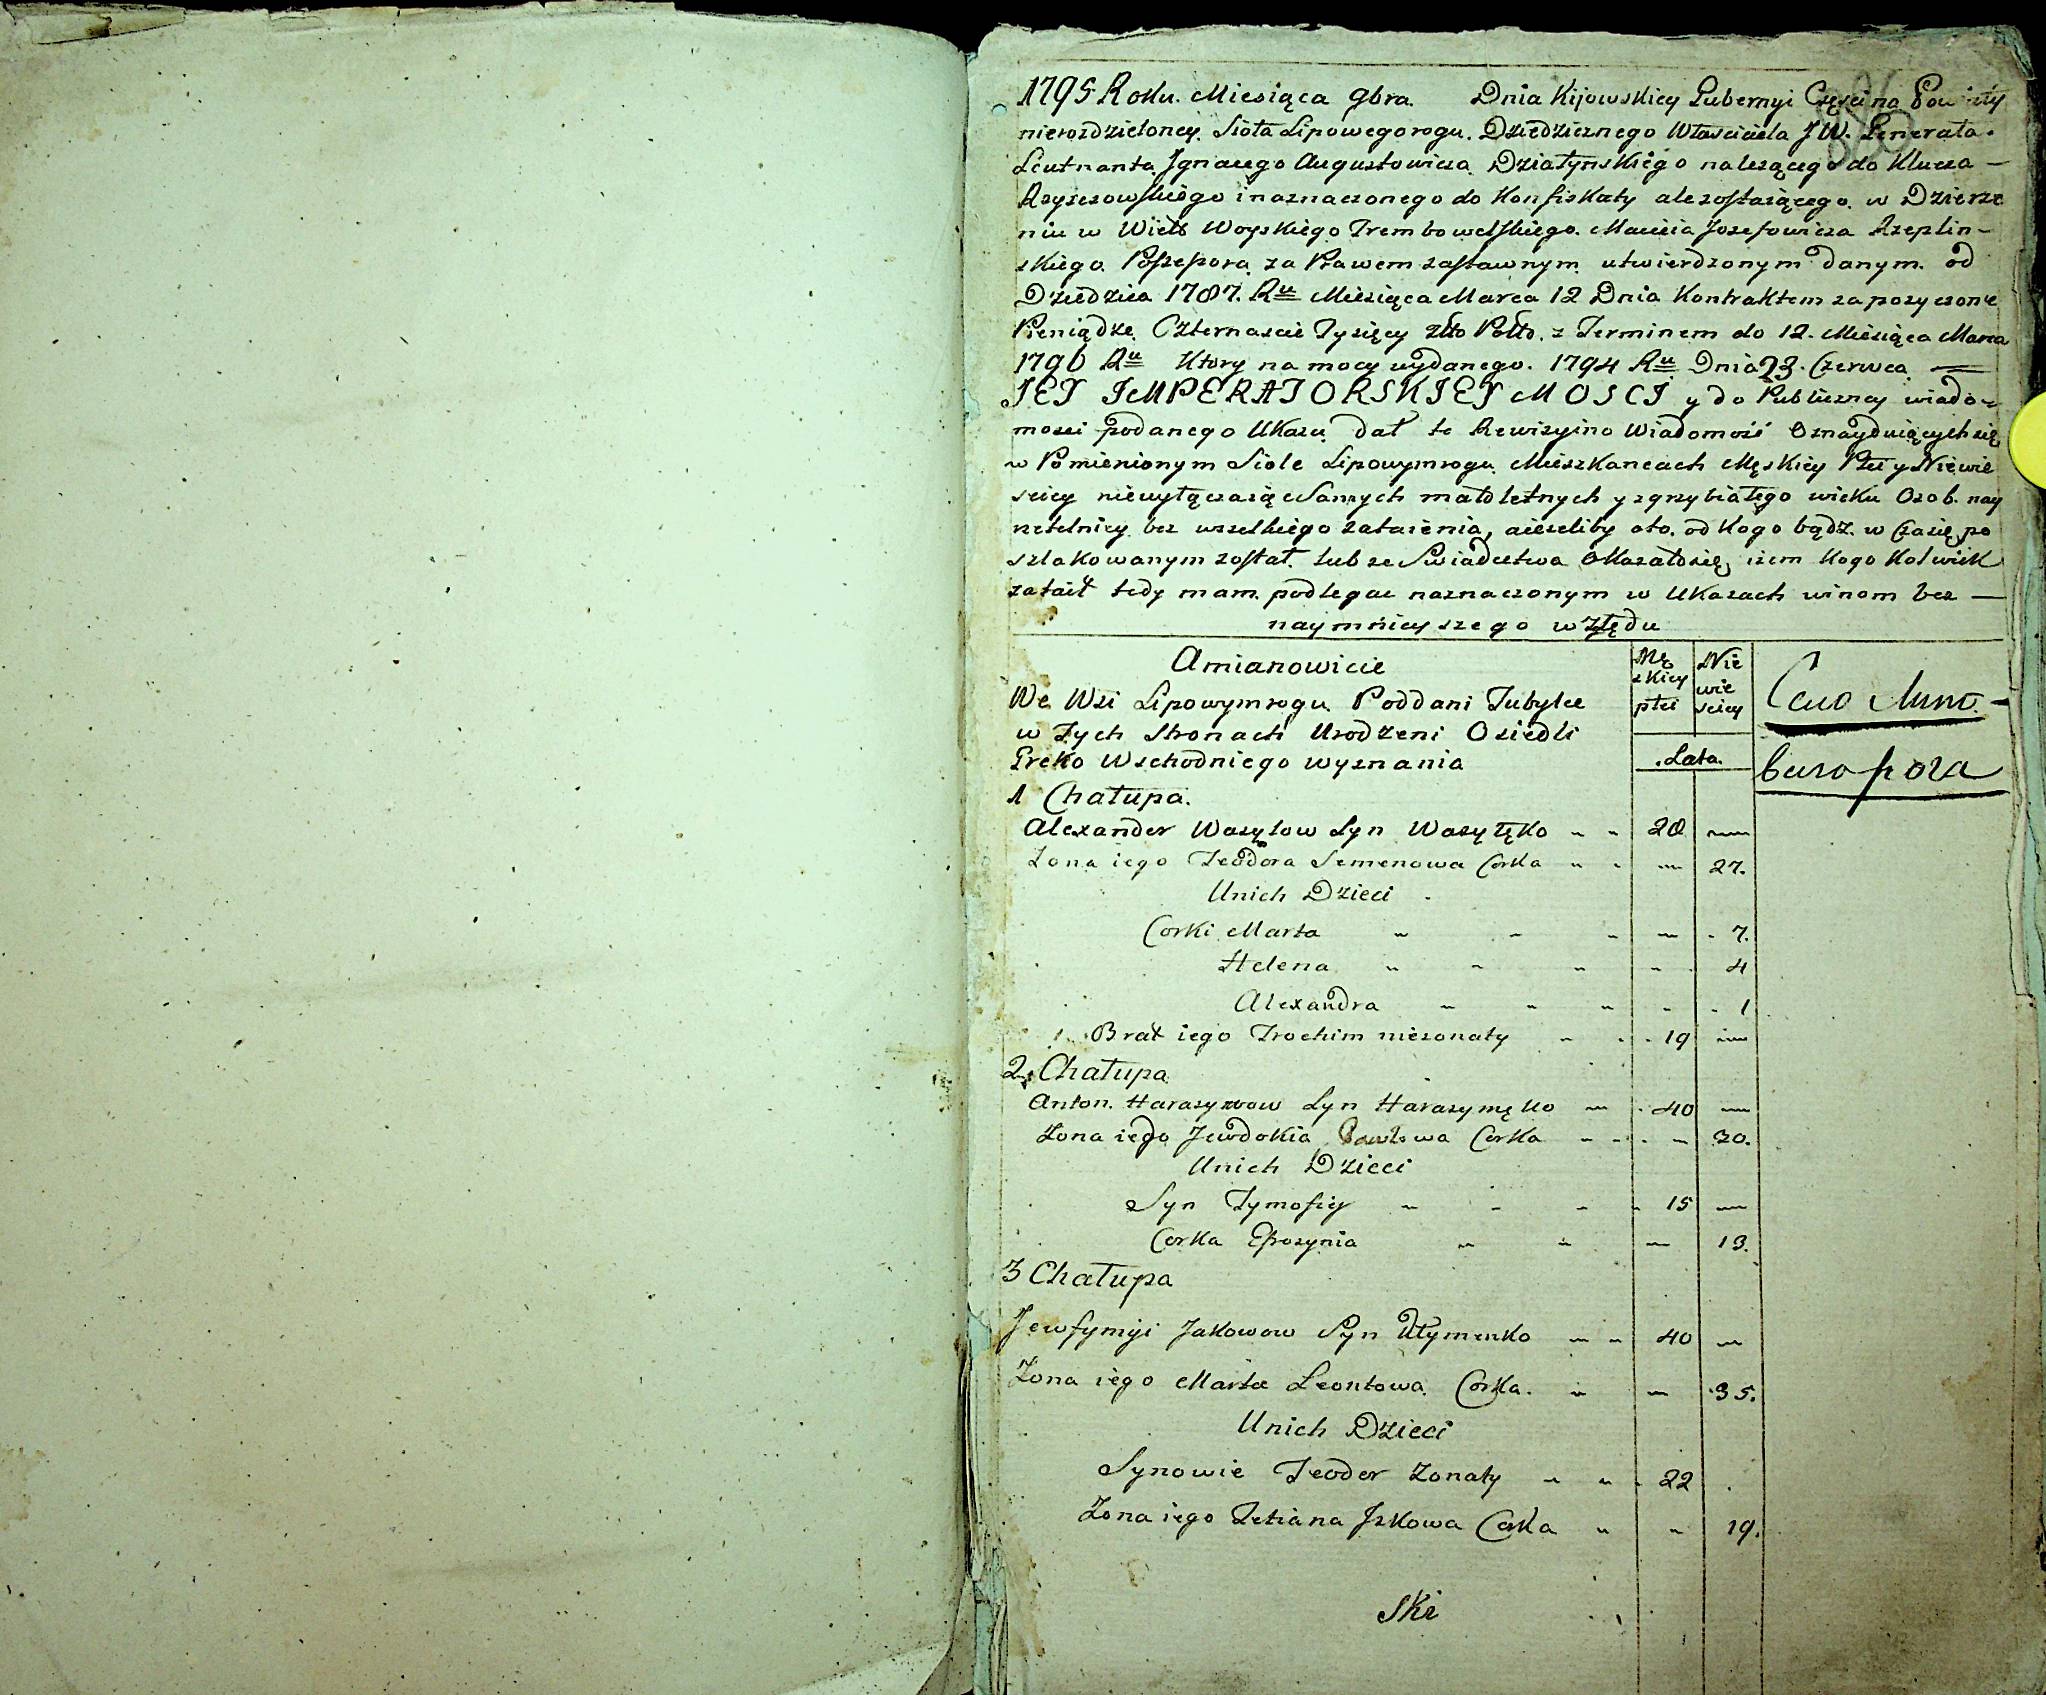 1795 Roku. Miesiąca 9bra. Dnia Kijowskiey Gubernyi Częsci na Powiaty
nierozdzieloney. Sioła Lipowegorogu. Dziedzicznego Własciciela JW. Generała.
Leutnanta Jgnacego Augustowicza Działynskiego nalezącego do Klucza —
Rzyszczowskiego inaznaczonego do Konfiskaty alezostaiącego. w Dzierze
niu w Wielb Woyskiego Trembowelskiego. Macieia Jozefowicza Rzeplin-
skiego. Possessora za Prawem zastawnym utwierdzonym danym. od
Dziedzica 1787. Ru Miesiąca Marca 12 Dnia Kontraktem za pozyczone
Pieniądze. Czternascie Tysięcy złto Polto. z Terminem do 12. Miesiąca Marca
1796 Ru Ktory na mocy wydanego. 1794 Ru Dnia 23. Czerwca —
JEJ JMPERATORSKIEJ MOSCI y do Publiczney wiado-
mosci podanego Ukazu dał tę Rewizyino Wiadomość Oznayduiącychsię
w Pomienionym Siole Lipowymrogu Mieszkancach Męskiey Płci y Niewie
sciey niewyłączaią Samych małoletnych y zgrzybiałego wieku Osob. nay
rzetelniey bez wszelkiego zataienia, aieseliby oto. od kogo bądz. w Czasie po
szlakowanym został. lub ze Swiadectwa Okazałosię, izem Kogo Kolwiek
zataił tedy mam. podlegac naznaczonym w Ukazach winom bez —
naymnieyszego względu
Amianowicie
Mę
skiey
płci
Nie
wie
sciey
Село Липо-
We Wsi Lipowymrogu Poddani Tubylce
w Tych Stronach Urodzeni Osiedli
Greko Wschodniego wyznania
.Lata.
1 Chałupa.
Alexander Wasylow Syn Wasylęko 28
Zona iego Teodora Semenowa Corka 27.
Unich Dzieci
Corki Marta 7.
Helena 4
Alexandra 1
Brat iego Trochim niezonaty 19
2 Chałupa
Anton. Harasymow Syn Harasymęko 40
Zona iego Jewdokia Pawłowa Corka 30.
Unich Dzieci
Syn Tymofiey 15
Corka Efrozynia 13.
3 Chałupa
Jewfymyi Jakowow Syn Kłymenko 40
Zona iego Marta Leontowa Corka. 35.
Unich Dzieci
Synowie Teodor Zonaty 22
Zona iego Tetiana Jzkowa Corka 19.